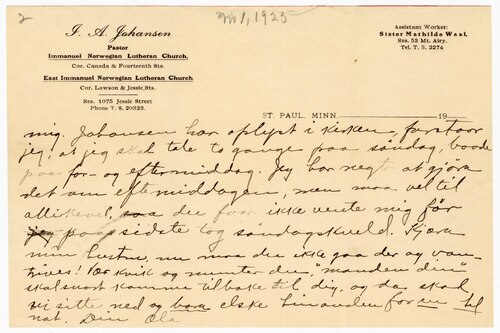 2
Nov 1, 1925
J. A. Johansen
Pastor
Immanuel Norwegian Lutheran Church,
Cor. Canada & Fourteenth Sts.
East Immanuel Norwegian Lutheran Church
Cor. Lawson & Jessie Sts.
Res. 1075 Jessie Street
Phone T. S. 20323.
Assistant Worker:
Sister Mathilde Waal,
Res. 53 Mt. Airy.
Tel. T. S. 2274
ST. PAUL, MINN. 19
mig. Johansen har oplyst i kirken, forstaar
jeg, at jeg skal tale to gange paa søndag, baade
paa for- og eftermiddag. Jeg har negtet at gjøre
det om eftermiddagen, men maa vel til
allikevel, saa du faar ikke vente mig før
jeg paa sidste tog søndagskveld. Kjære
min hustru, nu maa du ikke gaa der og van-
trives! Vær kvik og munter du, "manden din"
skal snart komme tilbake til dig, og da skal
vi sitte ned og bare elske hinanden for en hel
nat. Din Ola